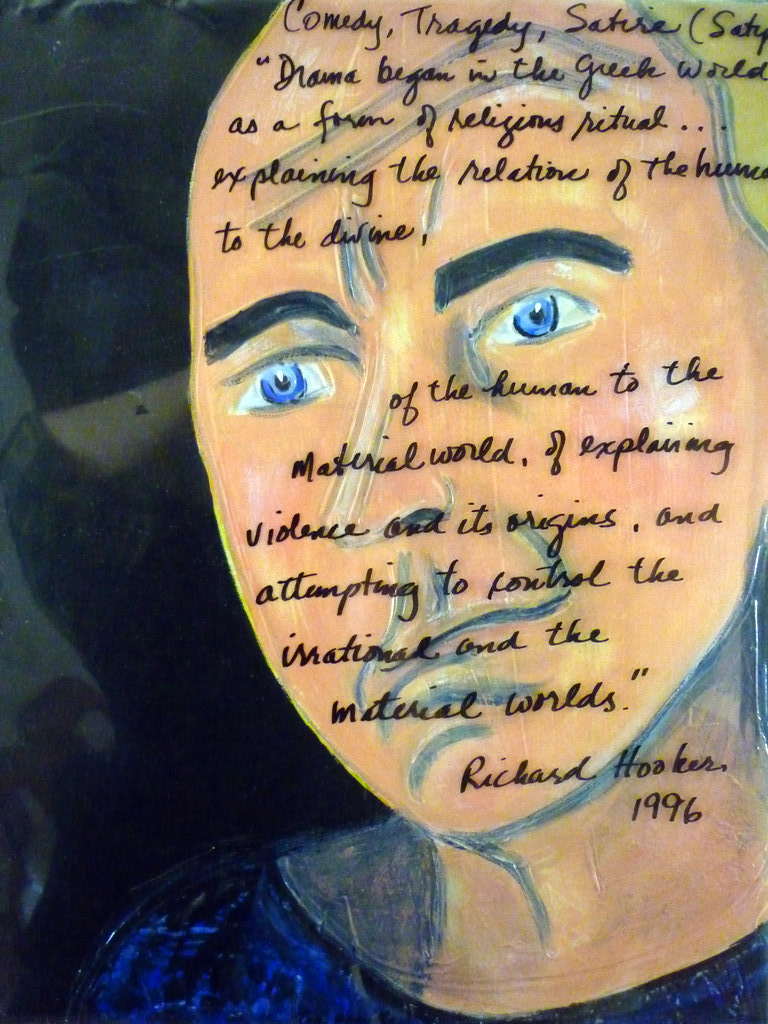 Comedy, Tragedy, Satire (Saty
"Drama began in the Greek World
as a form of religious ritual...
explaining the relation of the huma
to the divine,
of the human to the
material world, of explaining
violence and its origins, and
attempting to control the
irrational and the
material worlds."
Richard Hooker,
1996